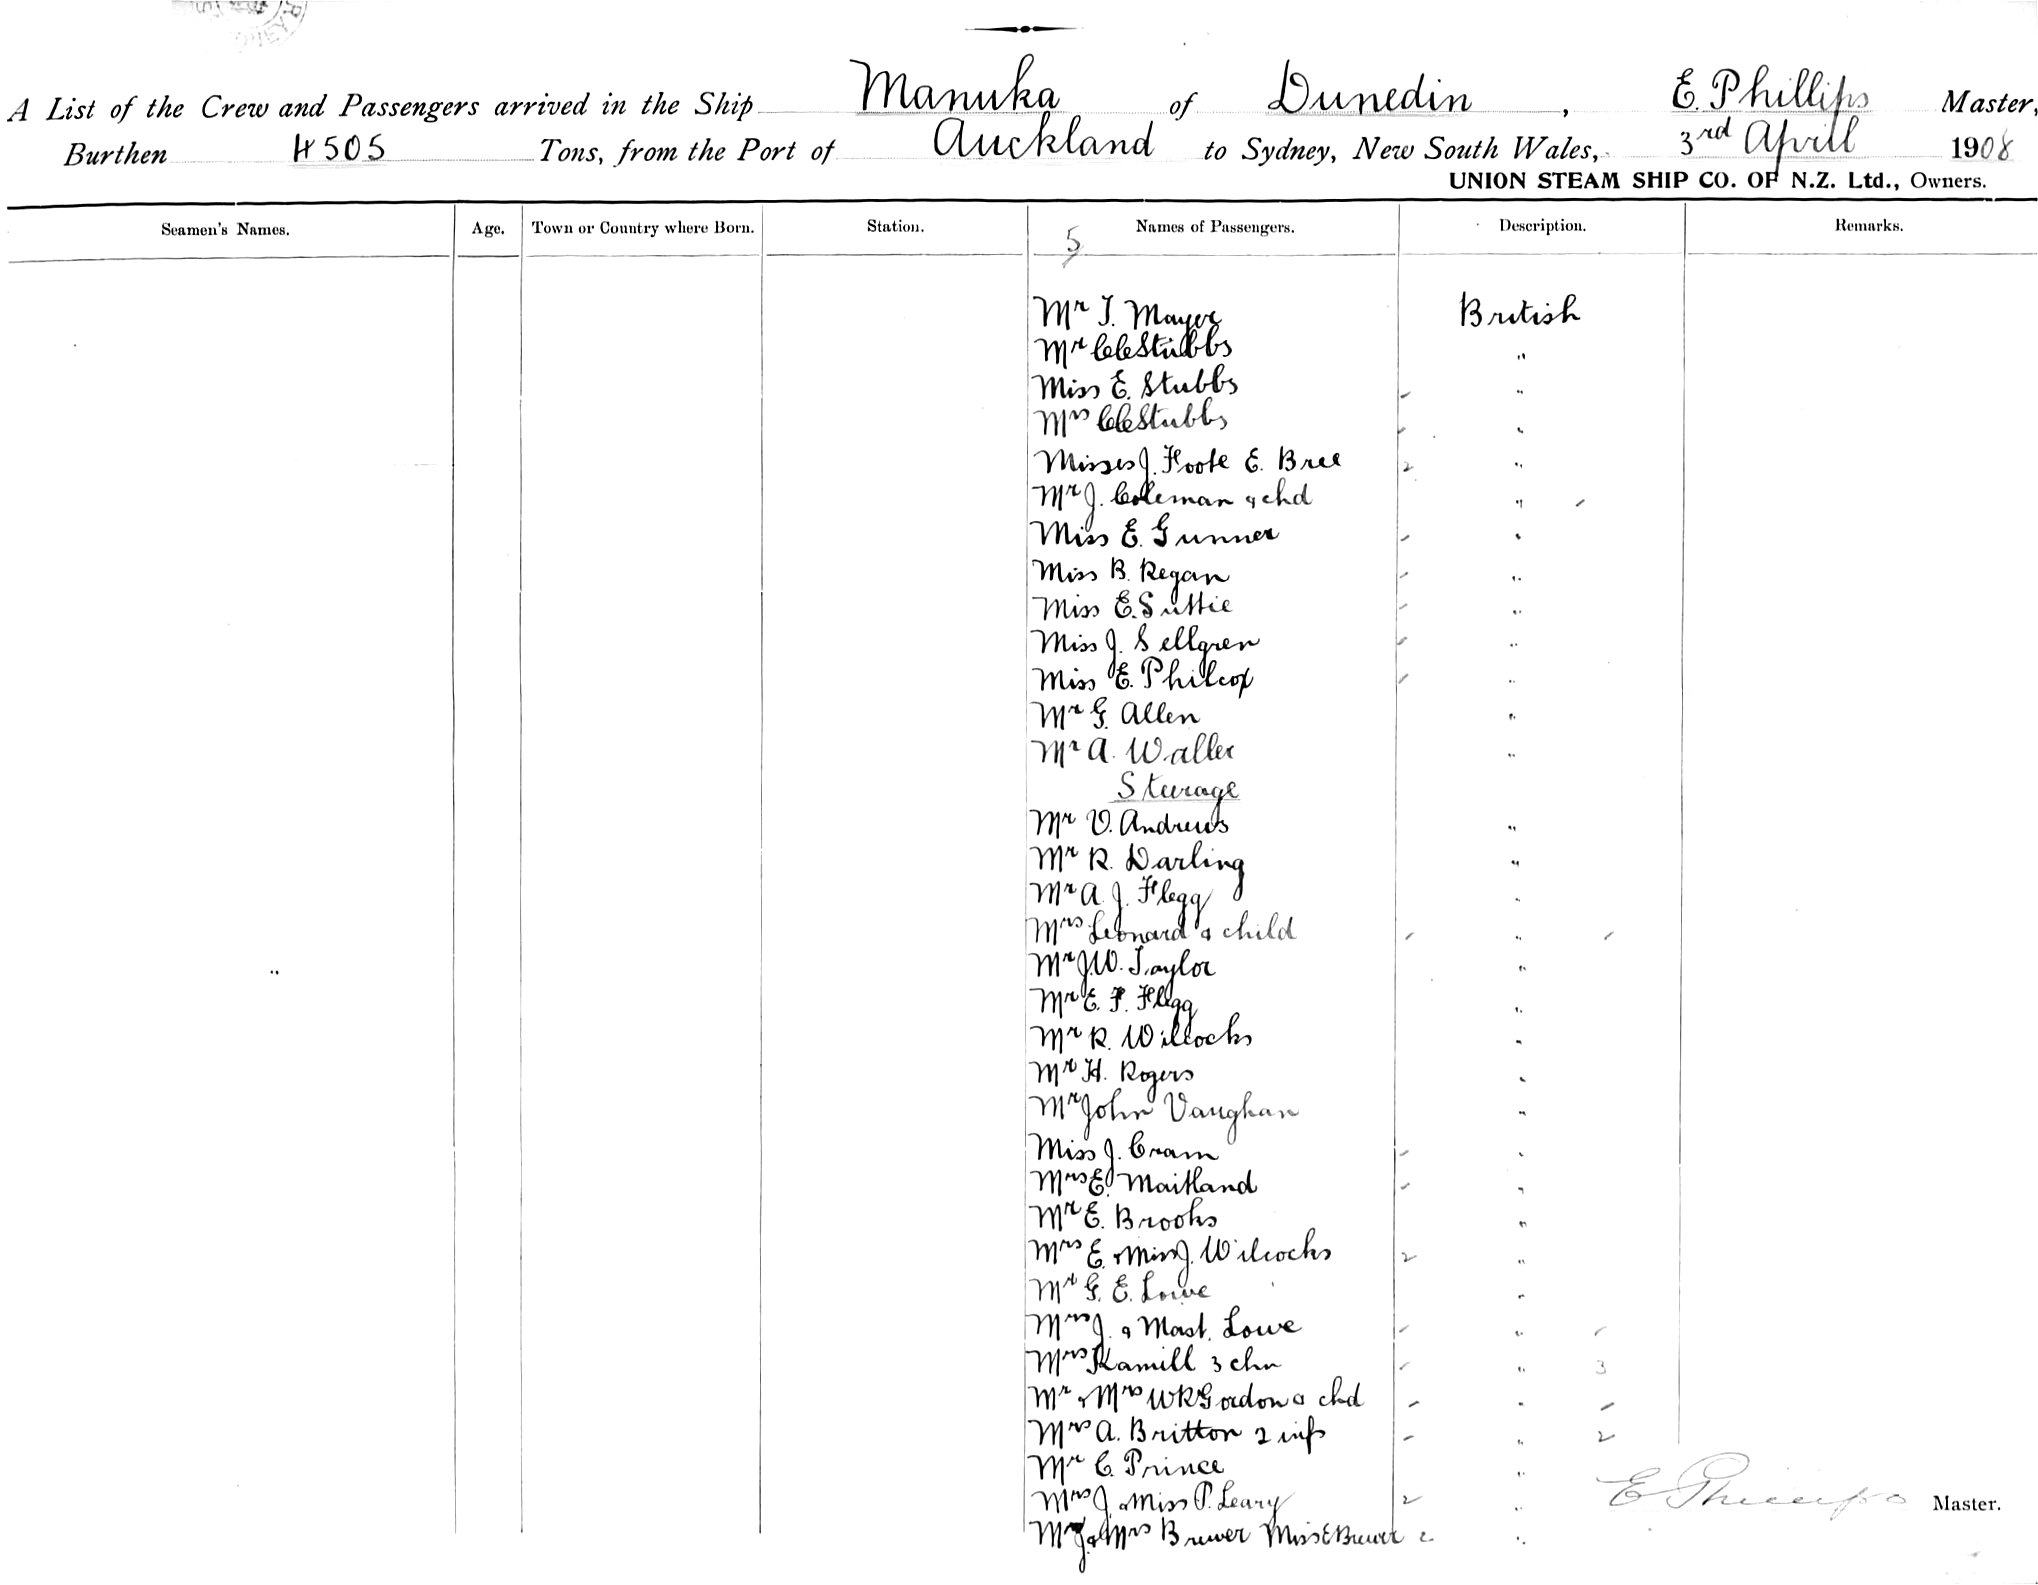 A List of the Crew and Passengers arrived in the Ship Manuka of Dunedin, E. Phillips Master,
Burthen 4505 Tons, from the Port of Auckland to Sydney, New South Wales, 3rd April 1908
UNION STEAM SHIP CO. OF N.Z. Ltd., Owners.
Seamen's Names. Age. Town or Country where Born. Station. Names of Passengers. Description. Remarks.
5
Mr T. Mayer British
Mr C C Stubbs "
Miss E. Stubbs "
Mrs C C Stubbs "
Misses J. Foote E. Bree 2 "
Mr J. Coleman & chd "
Miss E. Gunner "
Miss B. Regan "
Miss E. Suttie "
Miss J. Sellgren "
Miss E. Philcox "
Mr G. Allen "
Mr A. Waller "
Steerage
Mr V. Andrews "
Mr R. Darling "
Mr A. J. Flegg "
Mrs Leonard & child "
Mr J. W. Taylor "
Mr E. F. Flegg "
Mr R. Willcocks "
Mr H. Rogers "
Mr John Vaughan "
Miss J. Cram "
Mrs E. Maitland "
Mr E. Brooks "
Mrs E. & Miss J. Wilcocks 2 "
Mr G. E. Lowe "
Mrs J. & Mast. Lowe "
Mrs Kamill 3 chn " 3
Mr & Mrs W R Gordon & chd "
Mrs A. Britton 2 infs " 2
Mr C. Prince "
Mrs J. & Miss P. Leary 2 "
E Phillips Master.
Mr J. & Mrs Brewer Miss E Brewer 2 "